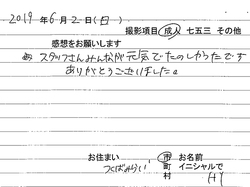 2019年6月2日(日)
撮影項目 成人 七五三 その他
感想をお願いします
スタッフさんみんなが元気でたのしかったです
ありがとうございました。
お住まい つくばみらい 市 町 村
お名前 イニシャルで H.Y